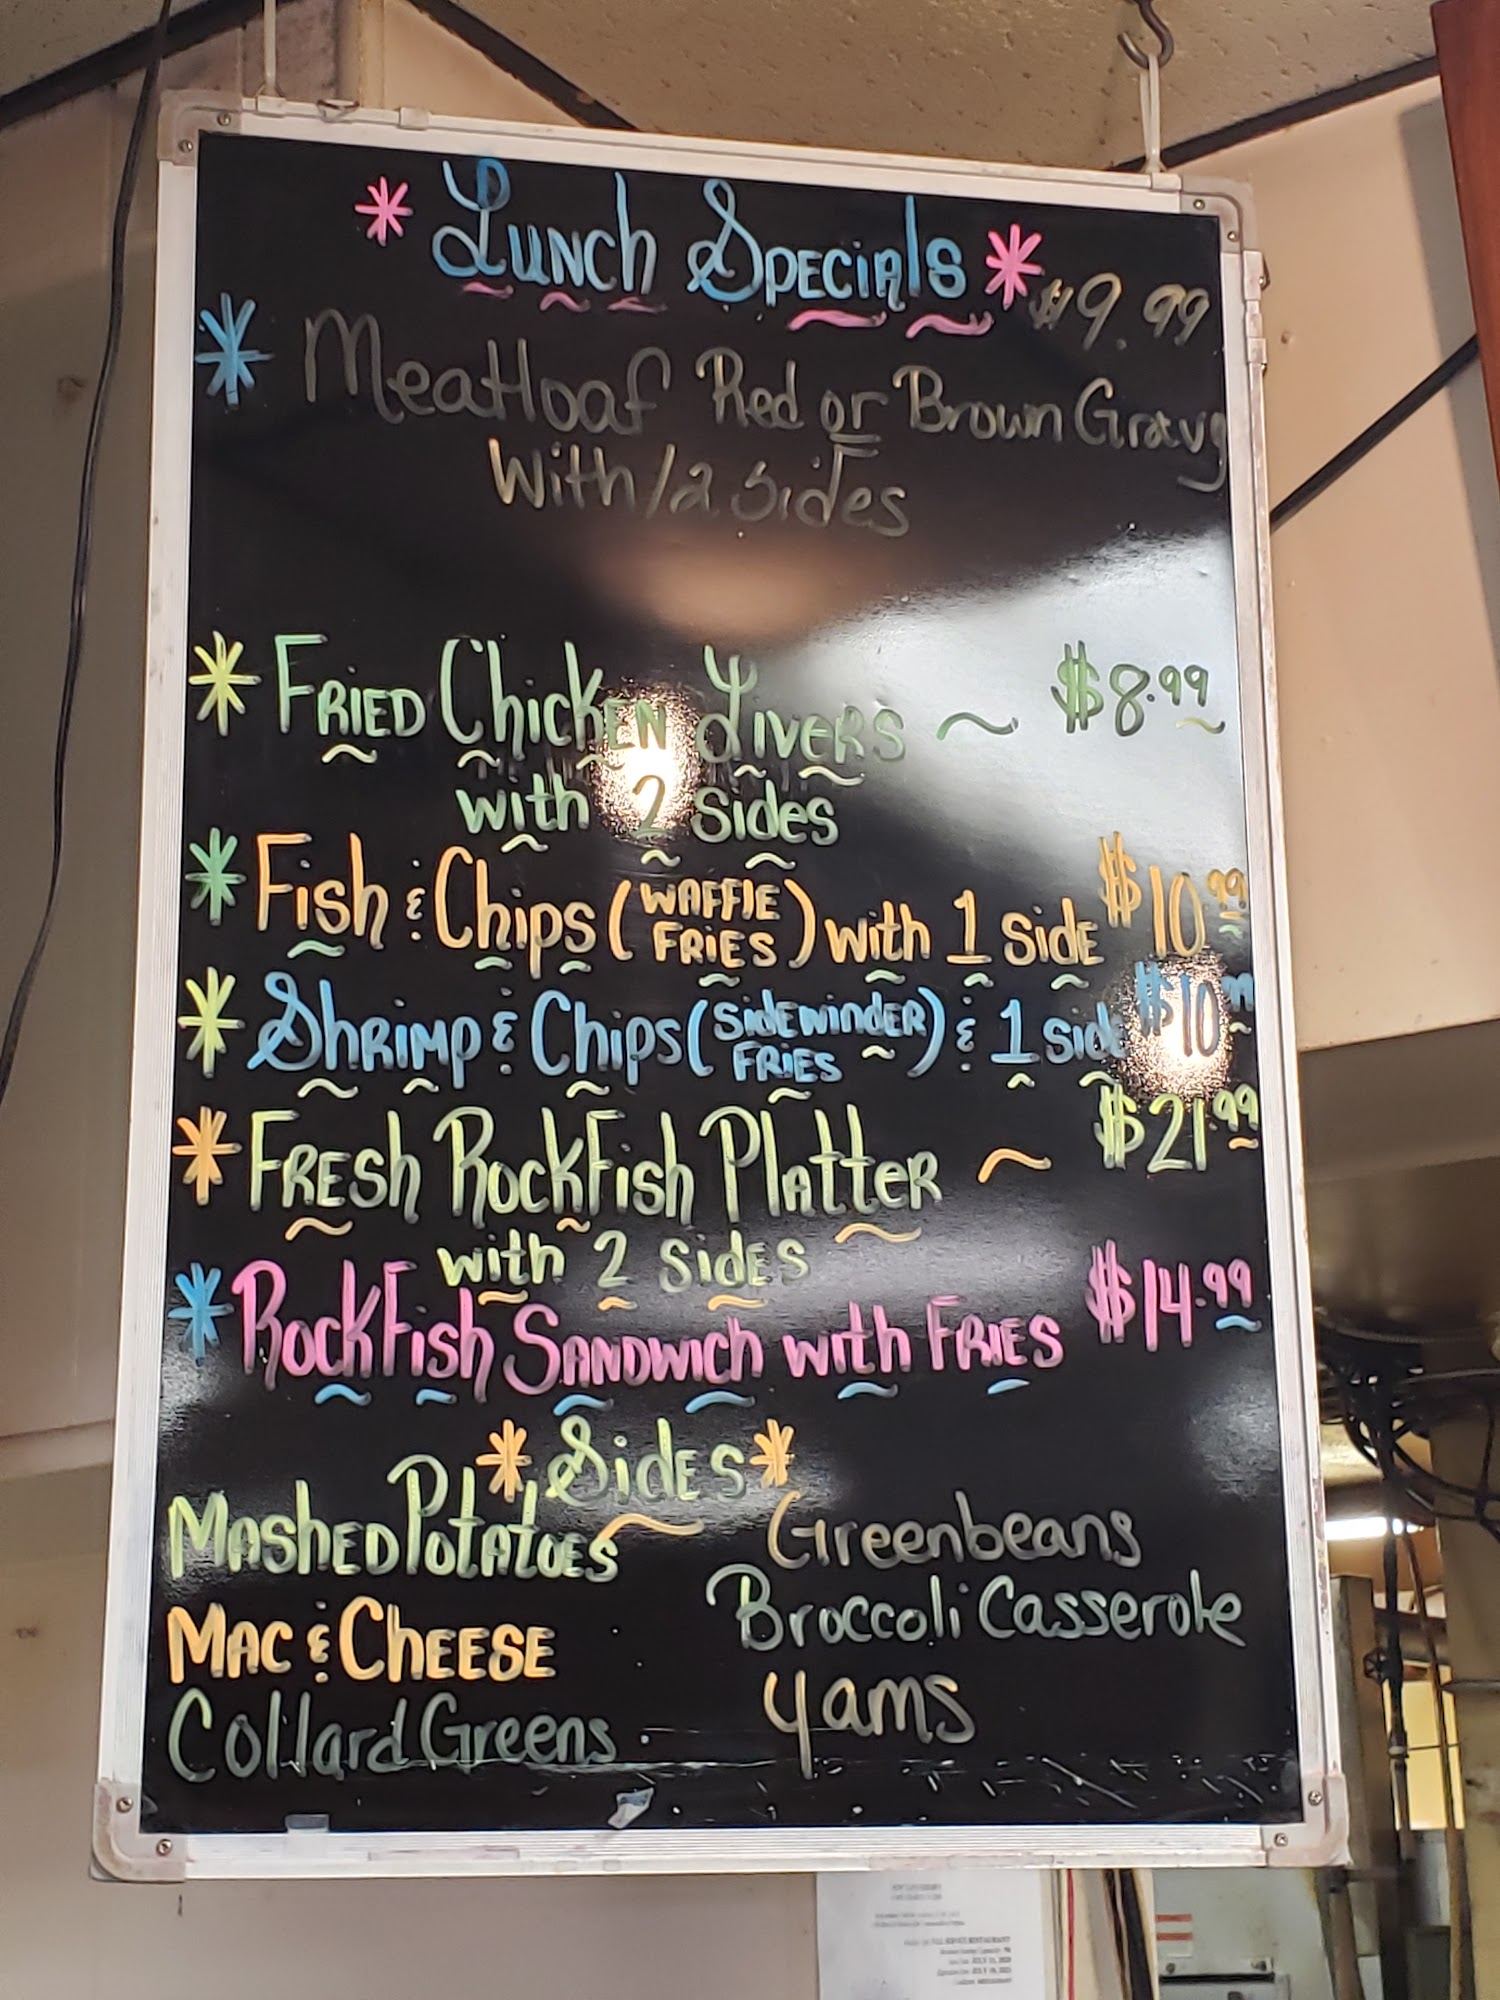 * Lunch Specials *
$9.99
* Meatloaf Red or Brown Gravy
With/2 sides
* Fried Chicken Livers ~ $8.99
with 2 sides
* Fish & Chips (Waffle Fries) with 1 side $10.99
* Shrimp & Chips (Sidewinder Fries) & 1 side $10
* Fresh Rockfish Platter ~ $21.99
with 2 sides
* Rockfish Sandwich with Fries $14.99
* Sides *
Mashed Potatoes Greenbeans
Mac & Cheese Broccoli Casserole
Collard Greens Yams